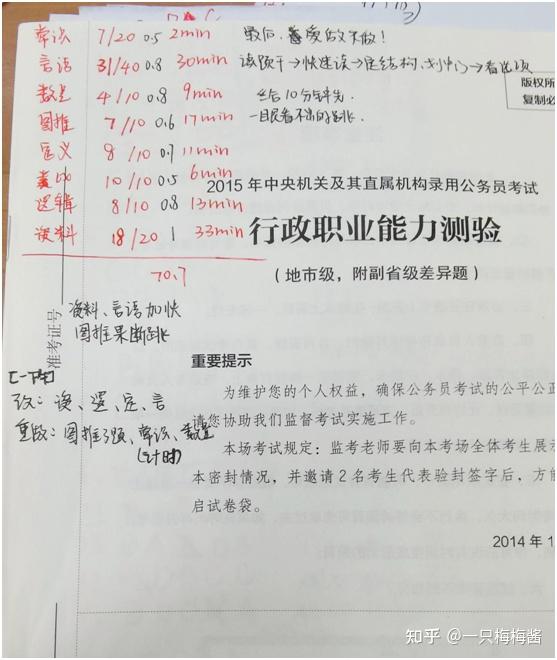 常识 7/20 0.5 2min 最后,
言语 31/40 0.8 30min 读题干→快速读→定结构、划中心→看选项
数量 4/10 0.8 9min 最后10分钟先.
图推 7/10 0.6 17min 一眼看不出的跳.
定义 8/10 0.7 11min
类比 10/10 0.5 6min
逻辑 8/10 0.8 13min
资料 18/20 1 33min
70.7
版权所
复制必
2015年中央机关及其直属机构录用公务员考试
行政职业能力测验
(地市级,附副省级差异题)
资料、言语加快
图推果断跳
准考证号
重要提示
为维护您的个人权益,确保公务员考试的公平公正
请您协助我们监督考试实施工作。
本场考试规定:监考老师要向本考场全体考生展示
本密封情况,并邀请2名考生代表验封签字后,方能
启试卷袋。
2014年1
逻、定、言
重做:图推3题、常识、数量
(计时)
知乎 @一只梅梅酱